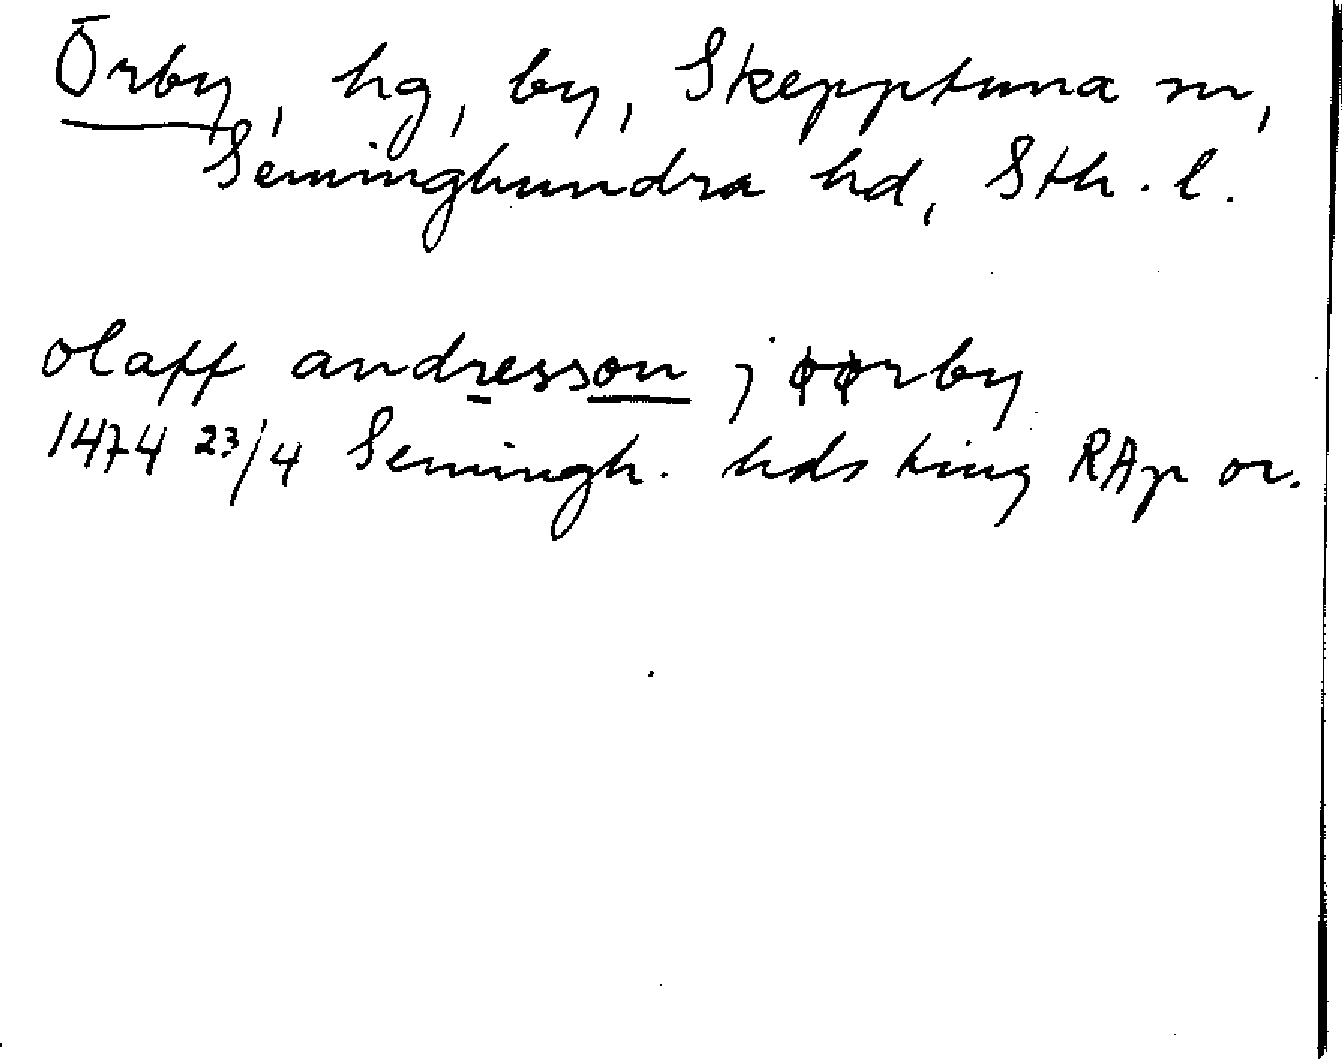 Örby, hg, by, Skepptuna sn,
Seminghundra hd, Sth. l.
olaff andresson j øørby
1474 23/4 Semingh. hds ting RAp or.